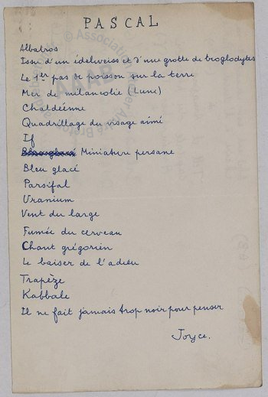 PASCAL
Albatros
Issu d'un édelweiss et d'une grotte de troglodytes
Le 1er pas de poisson sur la terre
Mer de mélancolie (Lune)
Chaldéenne
Quadrillage du visage aimé
If
Miniature persane
Bleu glacé
Parsifal
Uranium
Vent du large
Fumée du cerveau
Chant grégorien
Le baiser de l'adieu
Trapèze
Kabbale
Il ne fait jamais trop noir pour penser
Joyce.